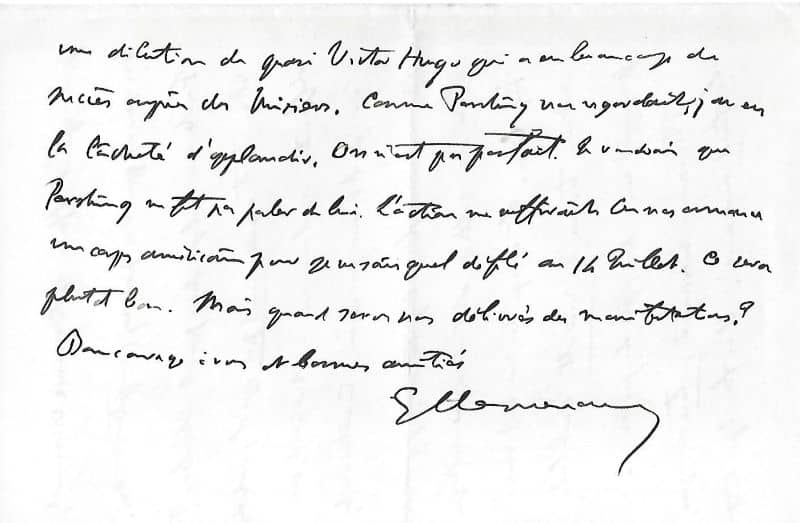 une dilution de quasi Victor Hugo qui a eu beaucoup de
succès auprès des Messieurs. Comme Pershing me regardait, j'ai eu
la lâcheté d'applaudir. On n'est pas parfait. Je voudrais que
Pershing ne fît pas parler de lui. L'action me suffirait. On nous annonce
un corps américain pour je ne sais quel défilé au 14 Juillet. Ce sera
plutôt bon. Mais quand serons nous délivrés des manifestations ?
Bon courage à vous et bonnes amitiés
GClemenceau